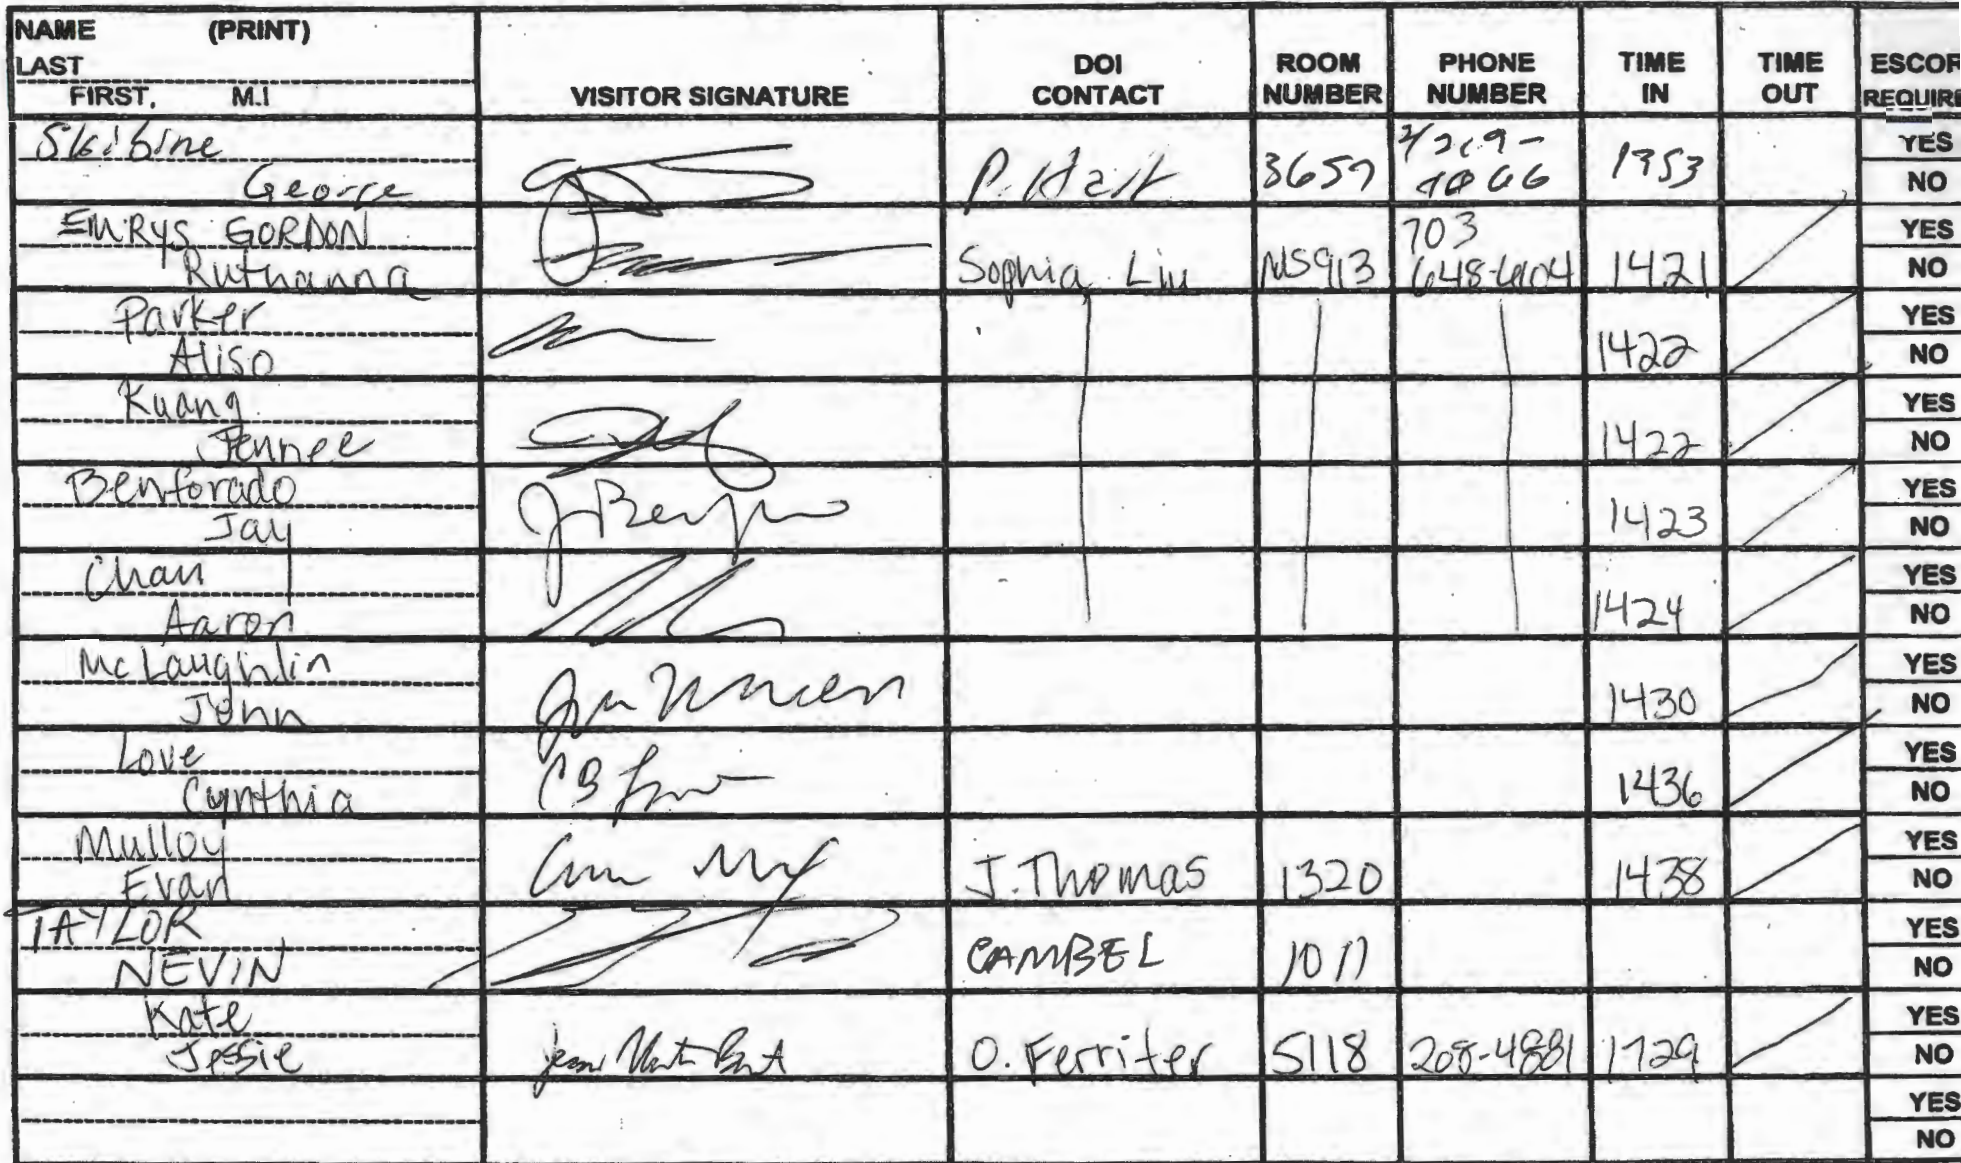 NAME (PRINT)
LAST
FIRST, M.I
VISITOR SIGNATURE
DOI CONTACT
ROOM NUMBER
PHONE NUMBER
TIME IN
TIME OUT
ESCOR
REQUIRE
Skibine
George
P. Hart 3657 1353
YES
NO
EMRYS GORDON
Ruthanna
Sophia Liu MS913 703 648- 1421
YES
NO
Parker
Aliso
1422
YES
NO
Kuang
Jennee
1422
YES
NO
Benforado
Jay
1423
YES
NO
Chan
Aaron
1424
YES
NO
McLaughlin
John
1430
YES
NO
Love
Cynthia
1436
YES
NO
Mulloy
Evan
J. Thomas 1320 1438
YES
NO
TAYLOR
NEVIN
CAMBEL
YES
NO
Kate
Jessie
O. Ferriter 5118 208-4881 1729
YES
NO
YES
NO